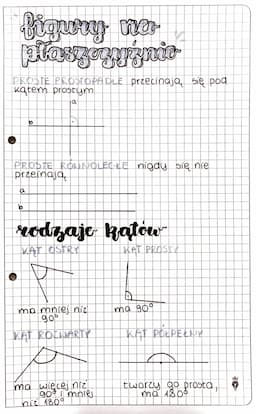 figury na
płaszczyźnie
PROSTE PROSTOPADŁE przecinają się pod
kątem prostym
a
b
PROSTE RÓWNOLEGŁE nigdy się nie
przeinają
a
b
rodzaje kątów
KĄT OSTRY KĄT PROSTY
ma mniej niż
90° ma 90°
KĄT ROZWARTY KĄT PÓŁPEŁNY
ma więcej niż
90° i mniej
niż 180°
tworzy go prosta,
ma 180°